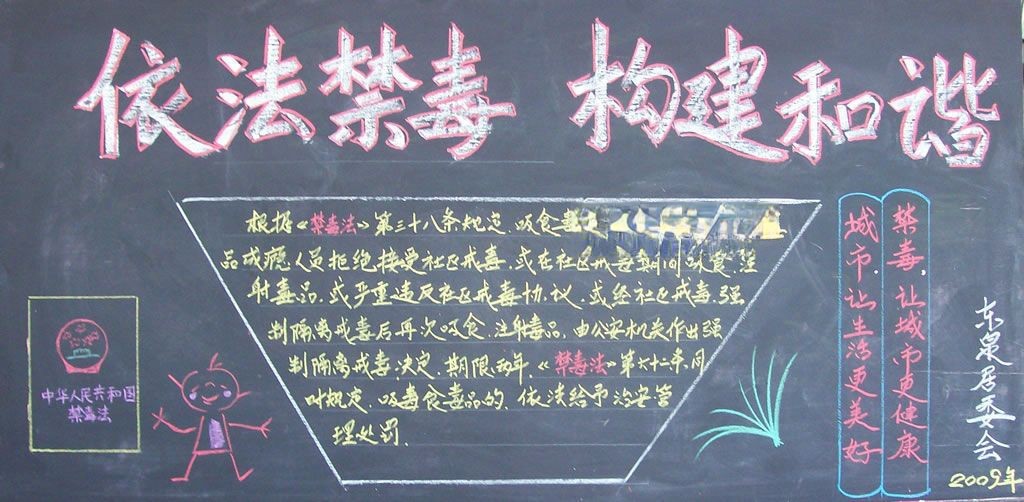 依法禁毒 构建和谐
根据《禁毒法》第三十八条规定,吸食毒
品成瘾人员拒绝接受社区戒毒,或在社区戒毒期间吸食、注
射毒品,或严重违反社区戒毒协议,或经社区戒毒、强
制隔离戒毒后再次吸食、注射毒品,由公安机关作出强
制隔离戒毒决定,期限两年,《禁毒法》第六十二条,同
时规定,吸毒食毒品的,依法给予治安管
理处罚.
中华人民共和国
禁毒法
禁毒,让城市更健康
城市,让生活更美好
东泉居委会
2009年